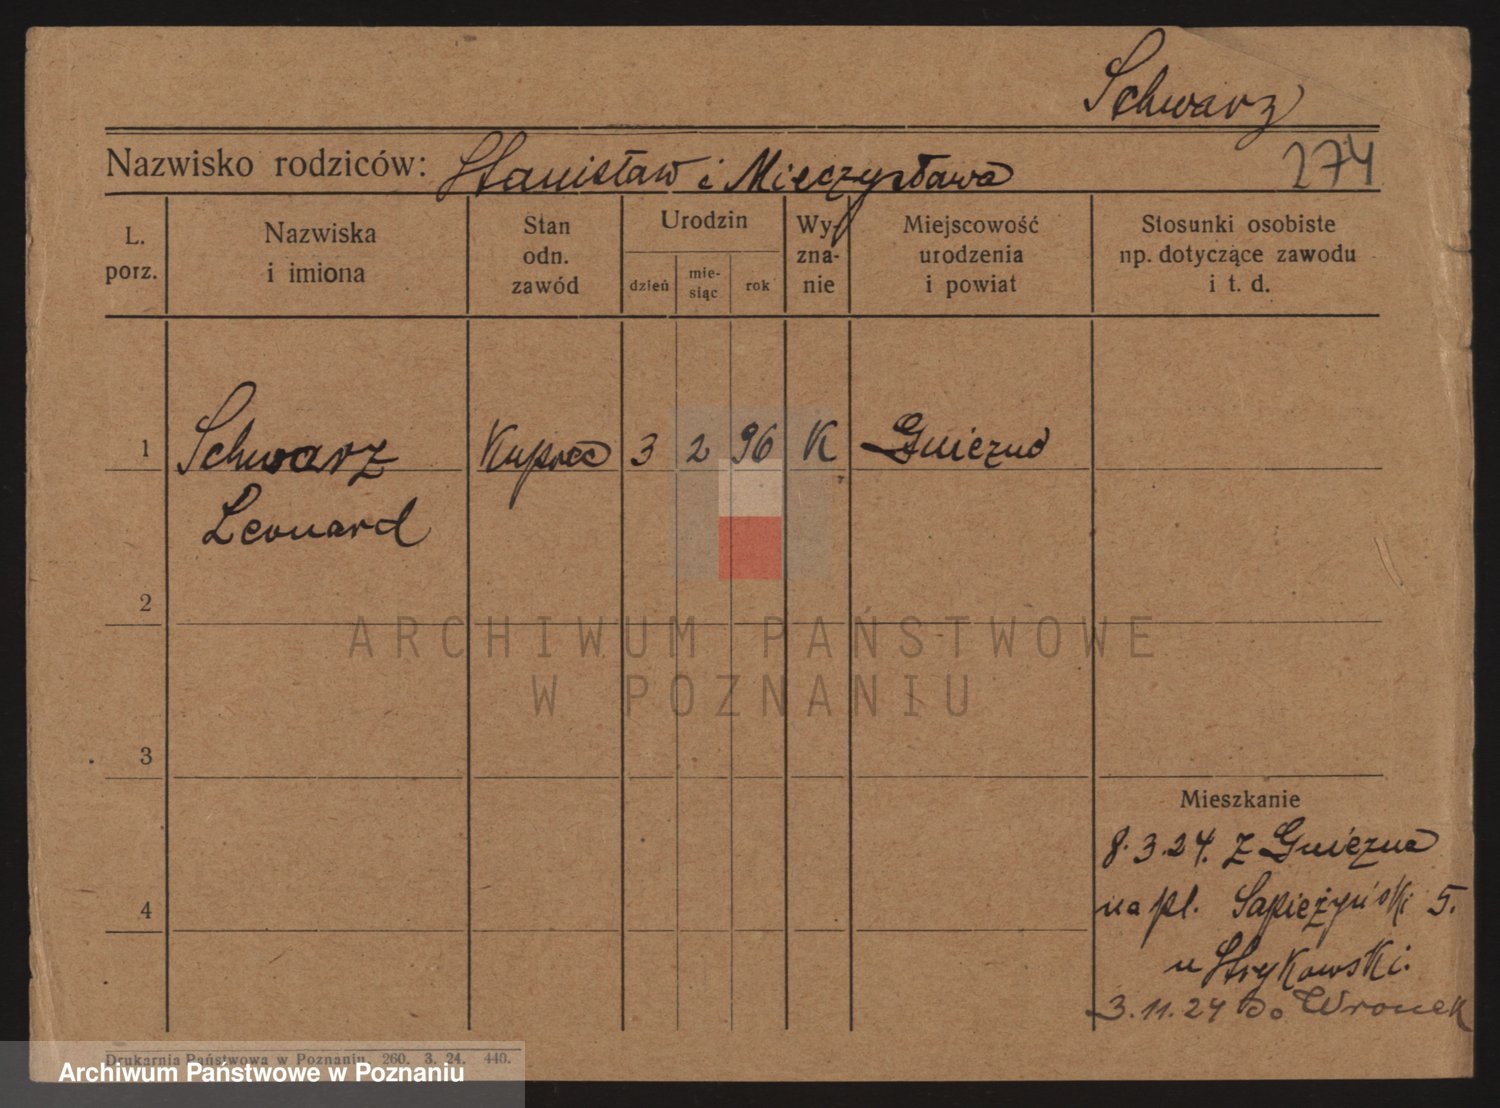 Schwarz
Nazwisko rodziców: Stanisław i Mieczysława
274
L. porz.
Nazwiska i imiona
Stan odn. zawód
Urodzin
dzień
mie-siąc
rok
Wy-zna-nie
Miejscowość urodzenia i powiat
Stosunki osobiste np. dotyczące zawodu i t. d.
1 Schwarz Kupiec 3 2 96 K Gniezno
Leonard
2
ARCHIWUM PAŃSTWOWE
W POZNANIU
3
Mieszkanie
8.3.24. z Gniezna
4
na pl. Sapieżyński 5.
u Strykowski.
3.11.24 Do Wronek
Drukarnia Państwowa w Poznaniu. 260. 3. 24. 440.
Archiwum Państwowe w Poznaniu